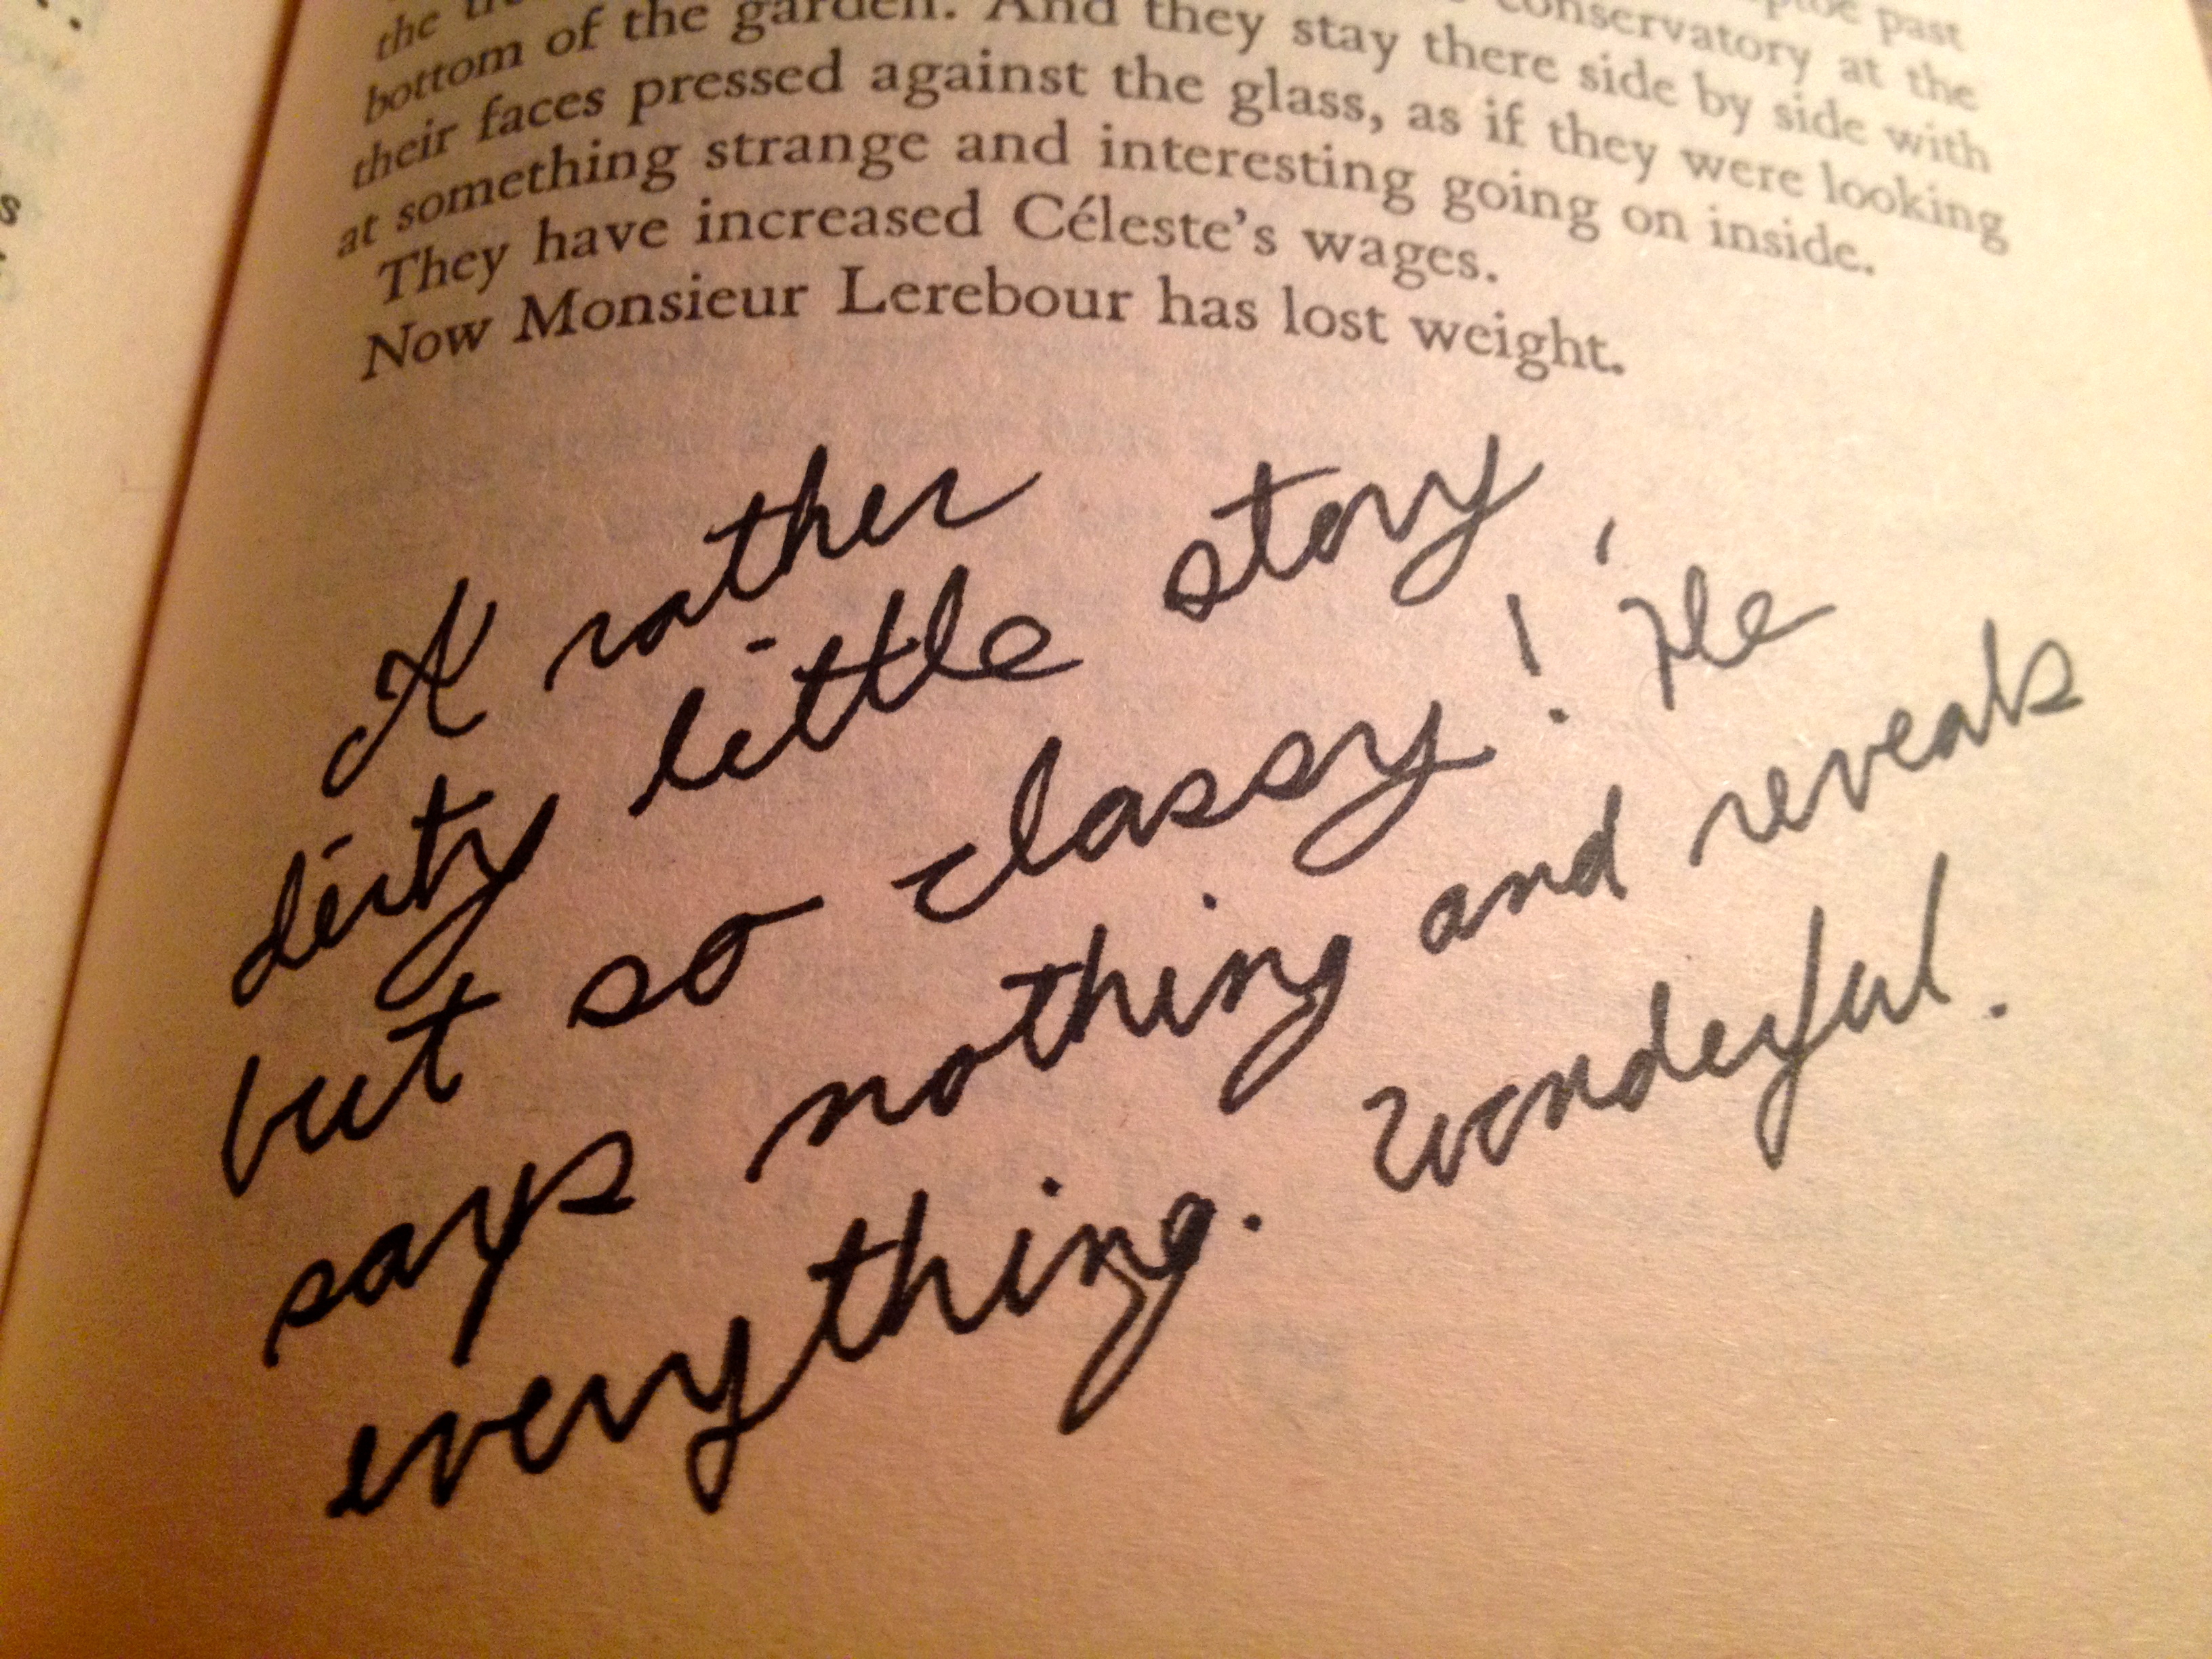 past
the conservatory at the
bottom of the garden. And they stay there side by side with
their faces pressed against the glass, as if they were looking
at something strange and interesting going on inside.
They have increased Céleste's wages.
Now Monsieur Lerebour has lost weight.
A rather
dirty little story,
but so classy! He
says nothing and reveals
everything. Wonderful.